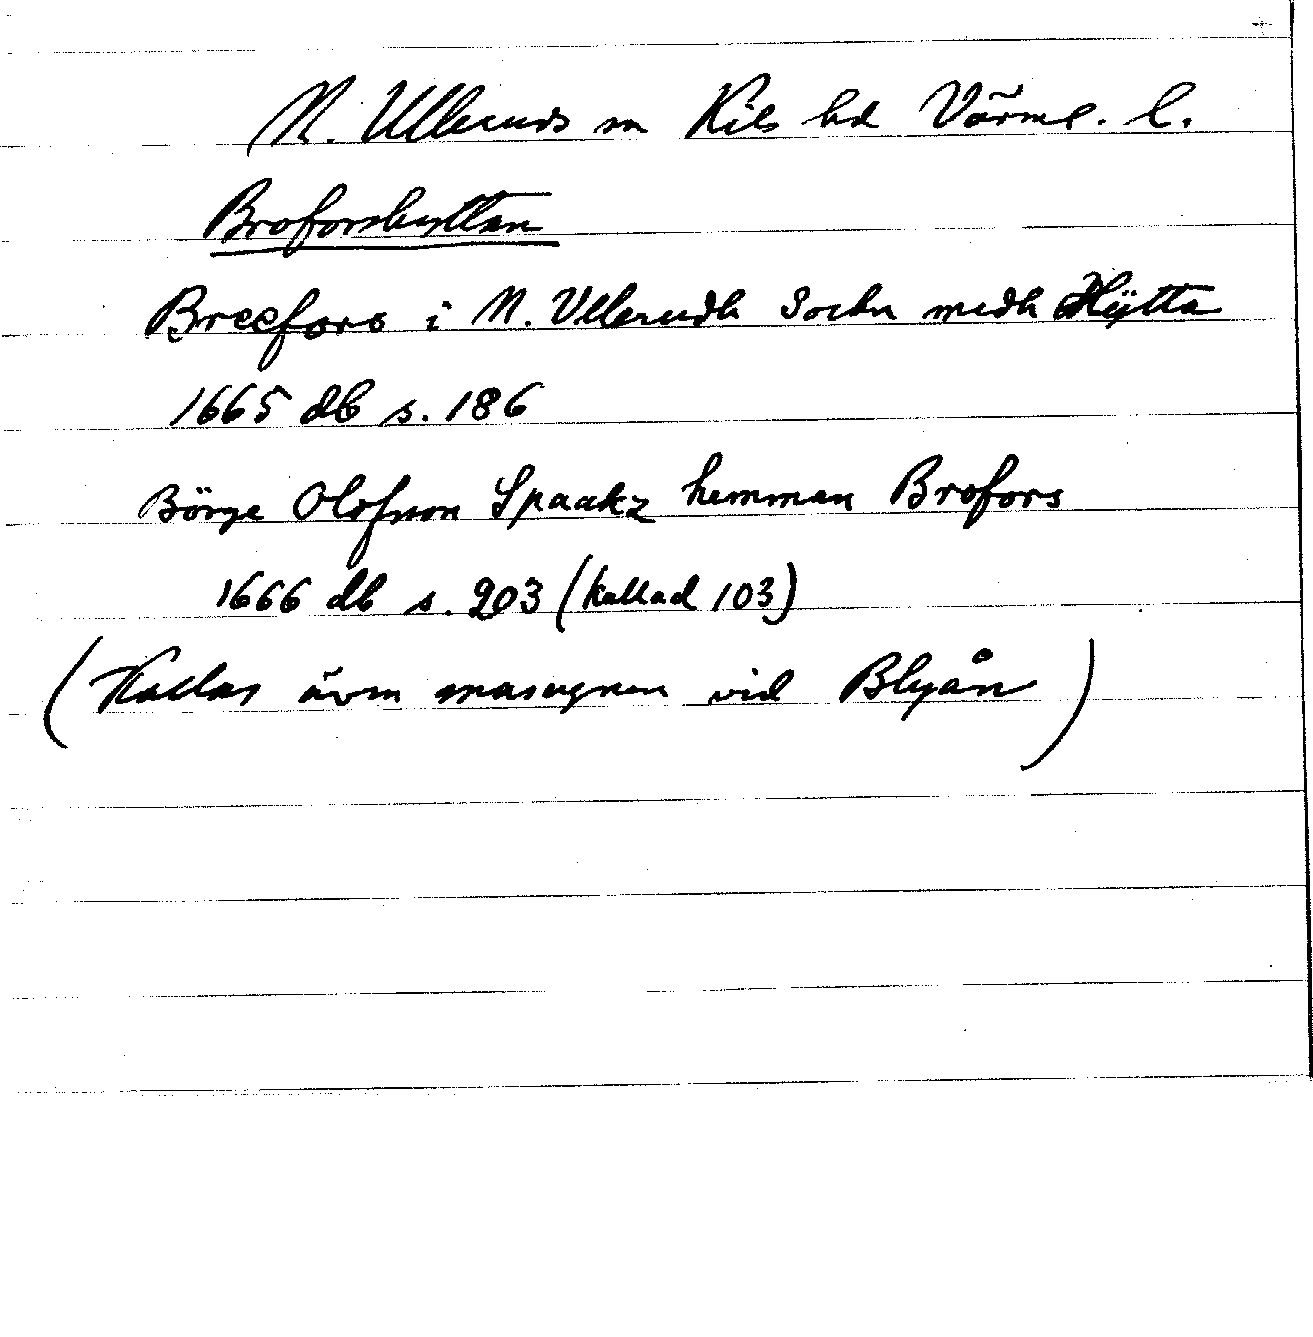 N. Ulleruds sn Kils hd Värml. l.
Broforshyttan
Breefors i N. Ullerudh Sochn medh Hÿtta
1665 db s. 186
Börge Olofsson Spaakz hemman Brofors
1666 db s. 203 (kallad 103)
(Kallas även masugnen vid Blyån)